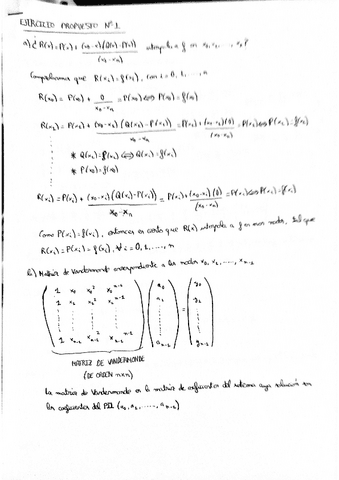 EJERCICIO PROPUESTO Nº1
a) ¿R(x)=P(x)+ (x0-x)(Q(x)-P(x)) / (x0-xn) interpola a f en x0, x1, ..., xn?
Comprobamos que R(xi)=f(xi), con i=0, 1, ..., n
R(x0)=P(x0)+ 0 / x0-xn = P(x0) ⟺ P(x0)=f(x0)
R(x1)=P(x1)+ (x0-x1)(Q(x1)-P(x1)) / x0-xn = P(x1)+ (x0-x1)(0) / (x0-xn) = P(x1) ⟺ P(x1)=f(x1)
* Q(x1)=P(x1) ⟺ Q(x1)=f(x1)
* P(x0)=f(x0)
R(xi)=P(xi)+ (x0-xi)(Q(xi)-P(xi)) / x0-xn = P(xi)+ (x0-xi)(0) / (x0-xn) = P(xi) ⟺ P(xi)=f(xi)
Como P(xi)=f(xi), entonces es cierto que R(x) interpola a f en esos nodos, tal que
R(xi)=P(xi)=f(xi), ∀i=0, 1, ..., n
b) Matriz de Vandermonde correspondiente a los nodos x0, x1, ..., xn-1
1 x0 x0² ... x0^n-1 a0 y0
1 x1 x1² ... x1^n-1 a1 y1
1 xn-1 xn-1² ... xn-1^n-1 an-1 yn-1
MATRIZ DE VANDERMONDE
(DE ORDEN n×n)
La matriz de Vandermonde es la matriz de coeficientes del sistema cuya solución son
los coeficientes del PIL (a0, a1, ..., an-1)